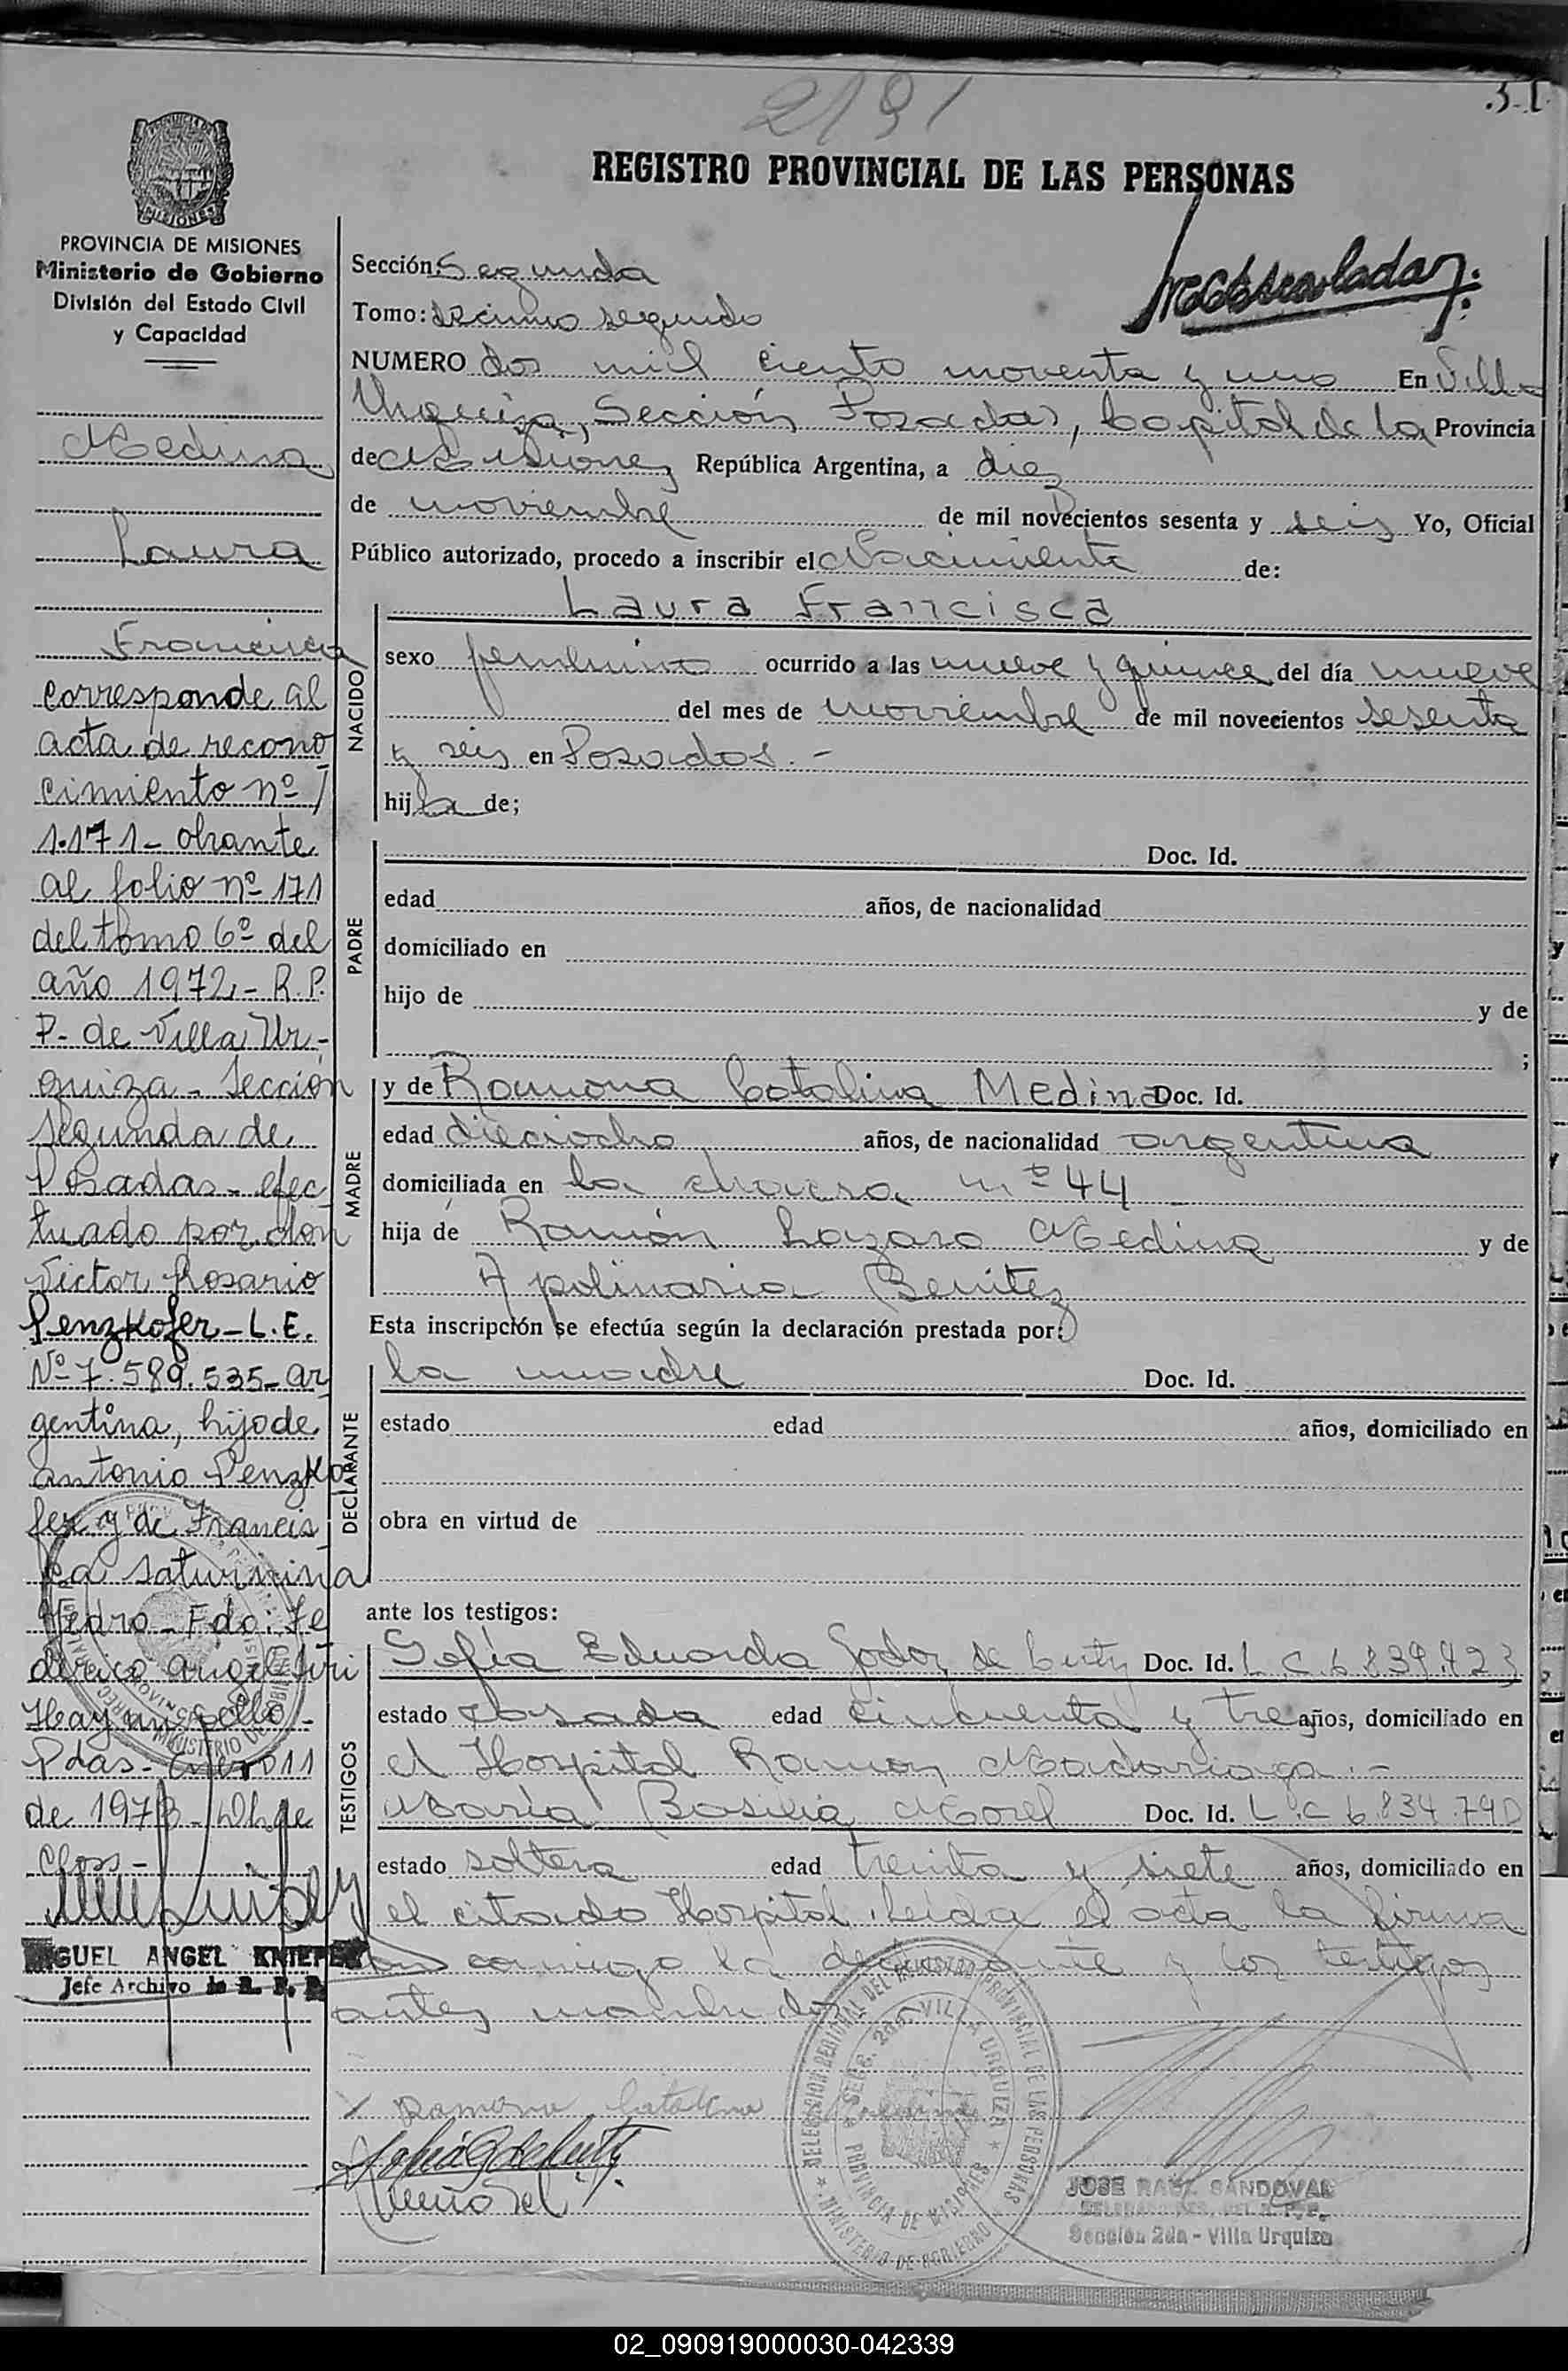 2191
31
REGISTRO PROVINCIAL DE LAS PERSONAS
MISIONES
PROVINCIA DE MISIONES
Ministerio de Gobierno
División del Estado Civil
y Capacidad
Medina
Laura
Francisca
corresponde al
acta de recono
cimiento nº
1.171- obrante
al folio nº 171
del tomo 6º del
año 1972,- R.P.
P.- de Villa Ur-
quiza - Sección
segunda de
Posadas - efec
tuado por don
Victor Rosario
Penzkofer - L.E.
Nº 7.589.535 - ar
gentina, hijo de
antonio Penzko
fer y de Francis
ca Saturnina
Fdo: Fe
derico angel
Hay un sello -
Pdas - Enero 11
de 1973
MIGUEL ANGEL KNIEPER
Jefe Archivo de R. P. P.
Sección: Segunda
Tomo: décimo segundo
NUMERO dos mil ciento noventa y uno En Villa
Urquiza, Sección Posadas, Capital de la Provincia
de Misiones República Argentina, a diez
de noviembre de mil novecientos sesenta y seis Yo, Oficial
Público autorizado, procedo a inscribir el Nacimiento de:
NACIDO
Laura Francisca
sexo femenino ocurrido a las nueve y quince del día nueve
del mes de noviembre de mil novecientos sesenta
y seis en Posadas.-
hija de;
PADRE
Doc. Id.
edad años, de nacionalidad
domiciliado en
hijo de y de
;
MADRE
y de Ramona Catalina Medina Doc. Id.
edad dieciocho años, de nacionalidad argentina
domiciliada en la chacra nº 44
hija de Ramón Lazaro Medina y de
Apolinaria Benitez
Esta inscripción se efectúa según la declaración prestada por:
DECLARANTE
la madre Doc. Id.
estado edad años, domiciliado en
obra en virtud de
ante los testigos:
TESTIGOS
Sofía Eduarda Godoy de Doc. Id. L.C. 6.839.423
estado casada edad cincuenta y tres años, domiciliado en
el Hospital Ramon Madariaga.-
María Basilia Morel Doc. Id. L.C 6.834.790
estado soltera edad treinta y siete años, domiciliado en
el citado Hospital. Leida el acta la firma
conmigo la declarante y los testigos
antes nombrados
Ramona Catalina Medina
DELEGACION REGIONAL DEL REGISTRO PROVINCIAL DE LAS PERSONAS
SECC. 2da. VILLA URQUIZA
PROVINCIA DE MISIONES
MINISTERIO DE GOBIERNO
JOSE RAUL SANDOVAL
Sección 2da - Villa Urquiza
02_090919000030-042339